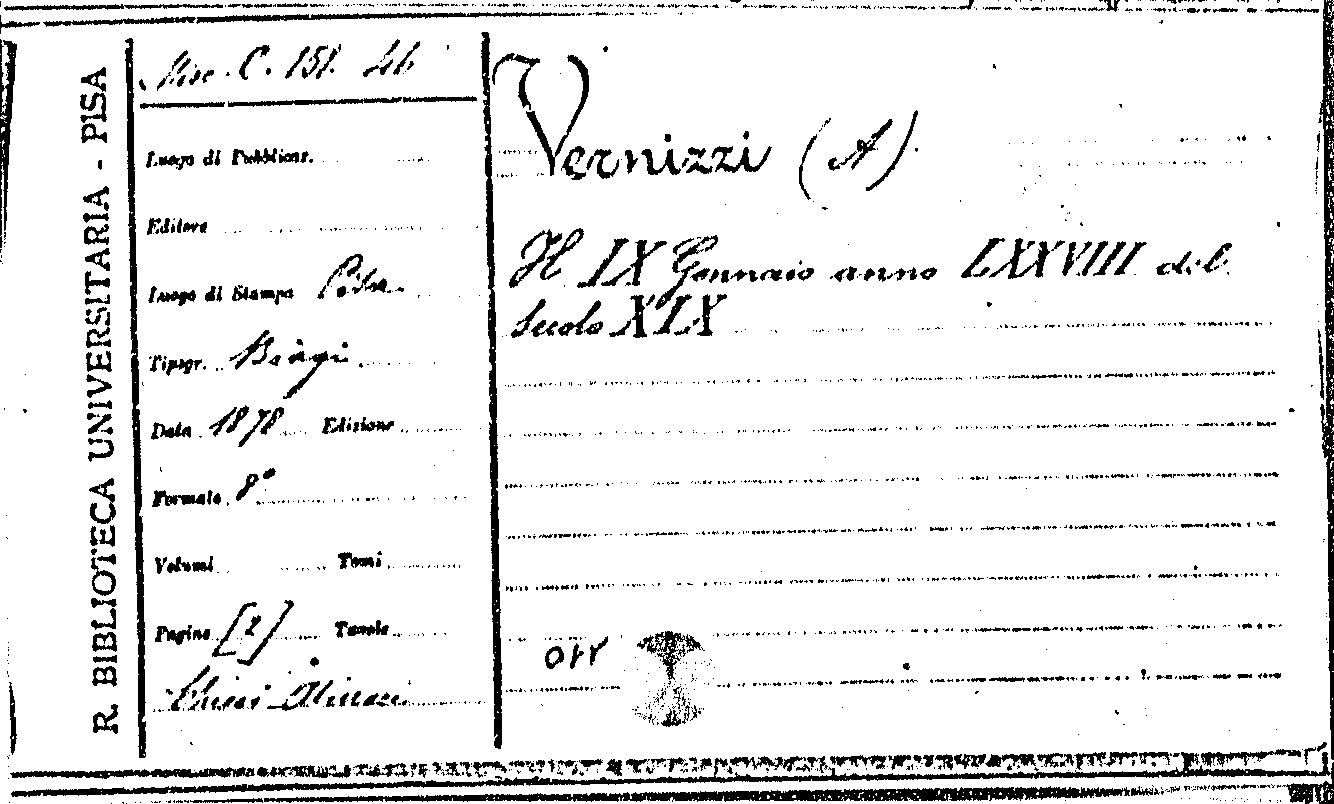 R. BIBLIOTECA UNIVERSITARIA - PISA
Misc. C. 151. 46
Luogo di Pubblicaz.
Editore
Luogo di Stampa Pisa
Tipogr. Biagi
Data 1878 Edizione
Formato 8°
Volumi Tomi
Pagine [2] Tavole
Vernizzi (A).
Il IX Gennaio anno LXXVIII del
Secolo XIX